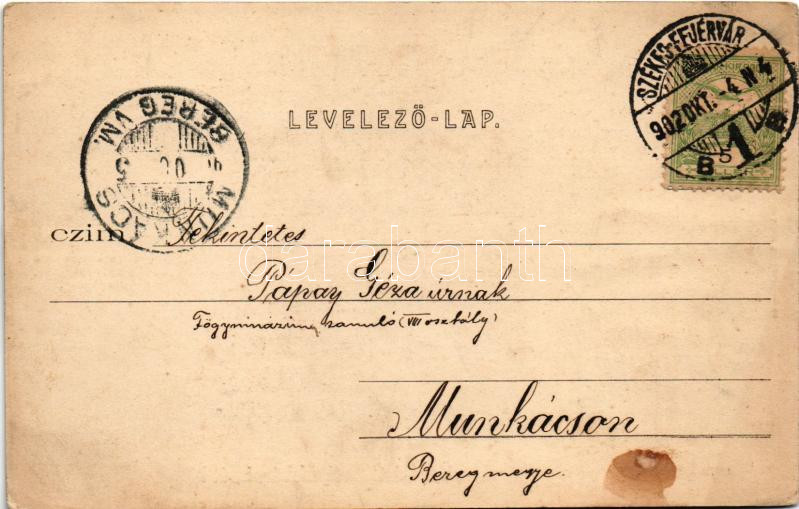 SZÉKESFEJÉRVÁR
902 OKT. -4 N4
B 1 B
BEREG VM.
MUNKÁCS
LEVELEZŐ-LAP.
czim Tekintetes
Pápay Géza úrnak
Főgymnázium tanuló (VIII osztály)
Munkácson
Beregmegye.
darabanth